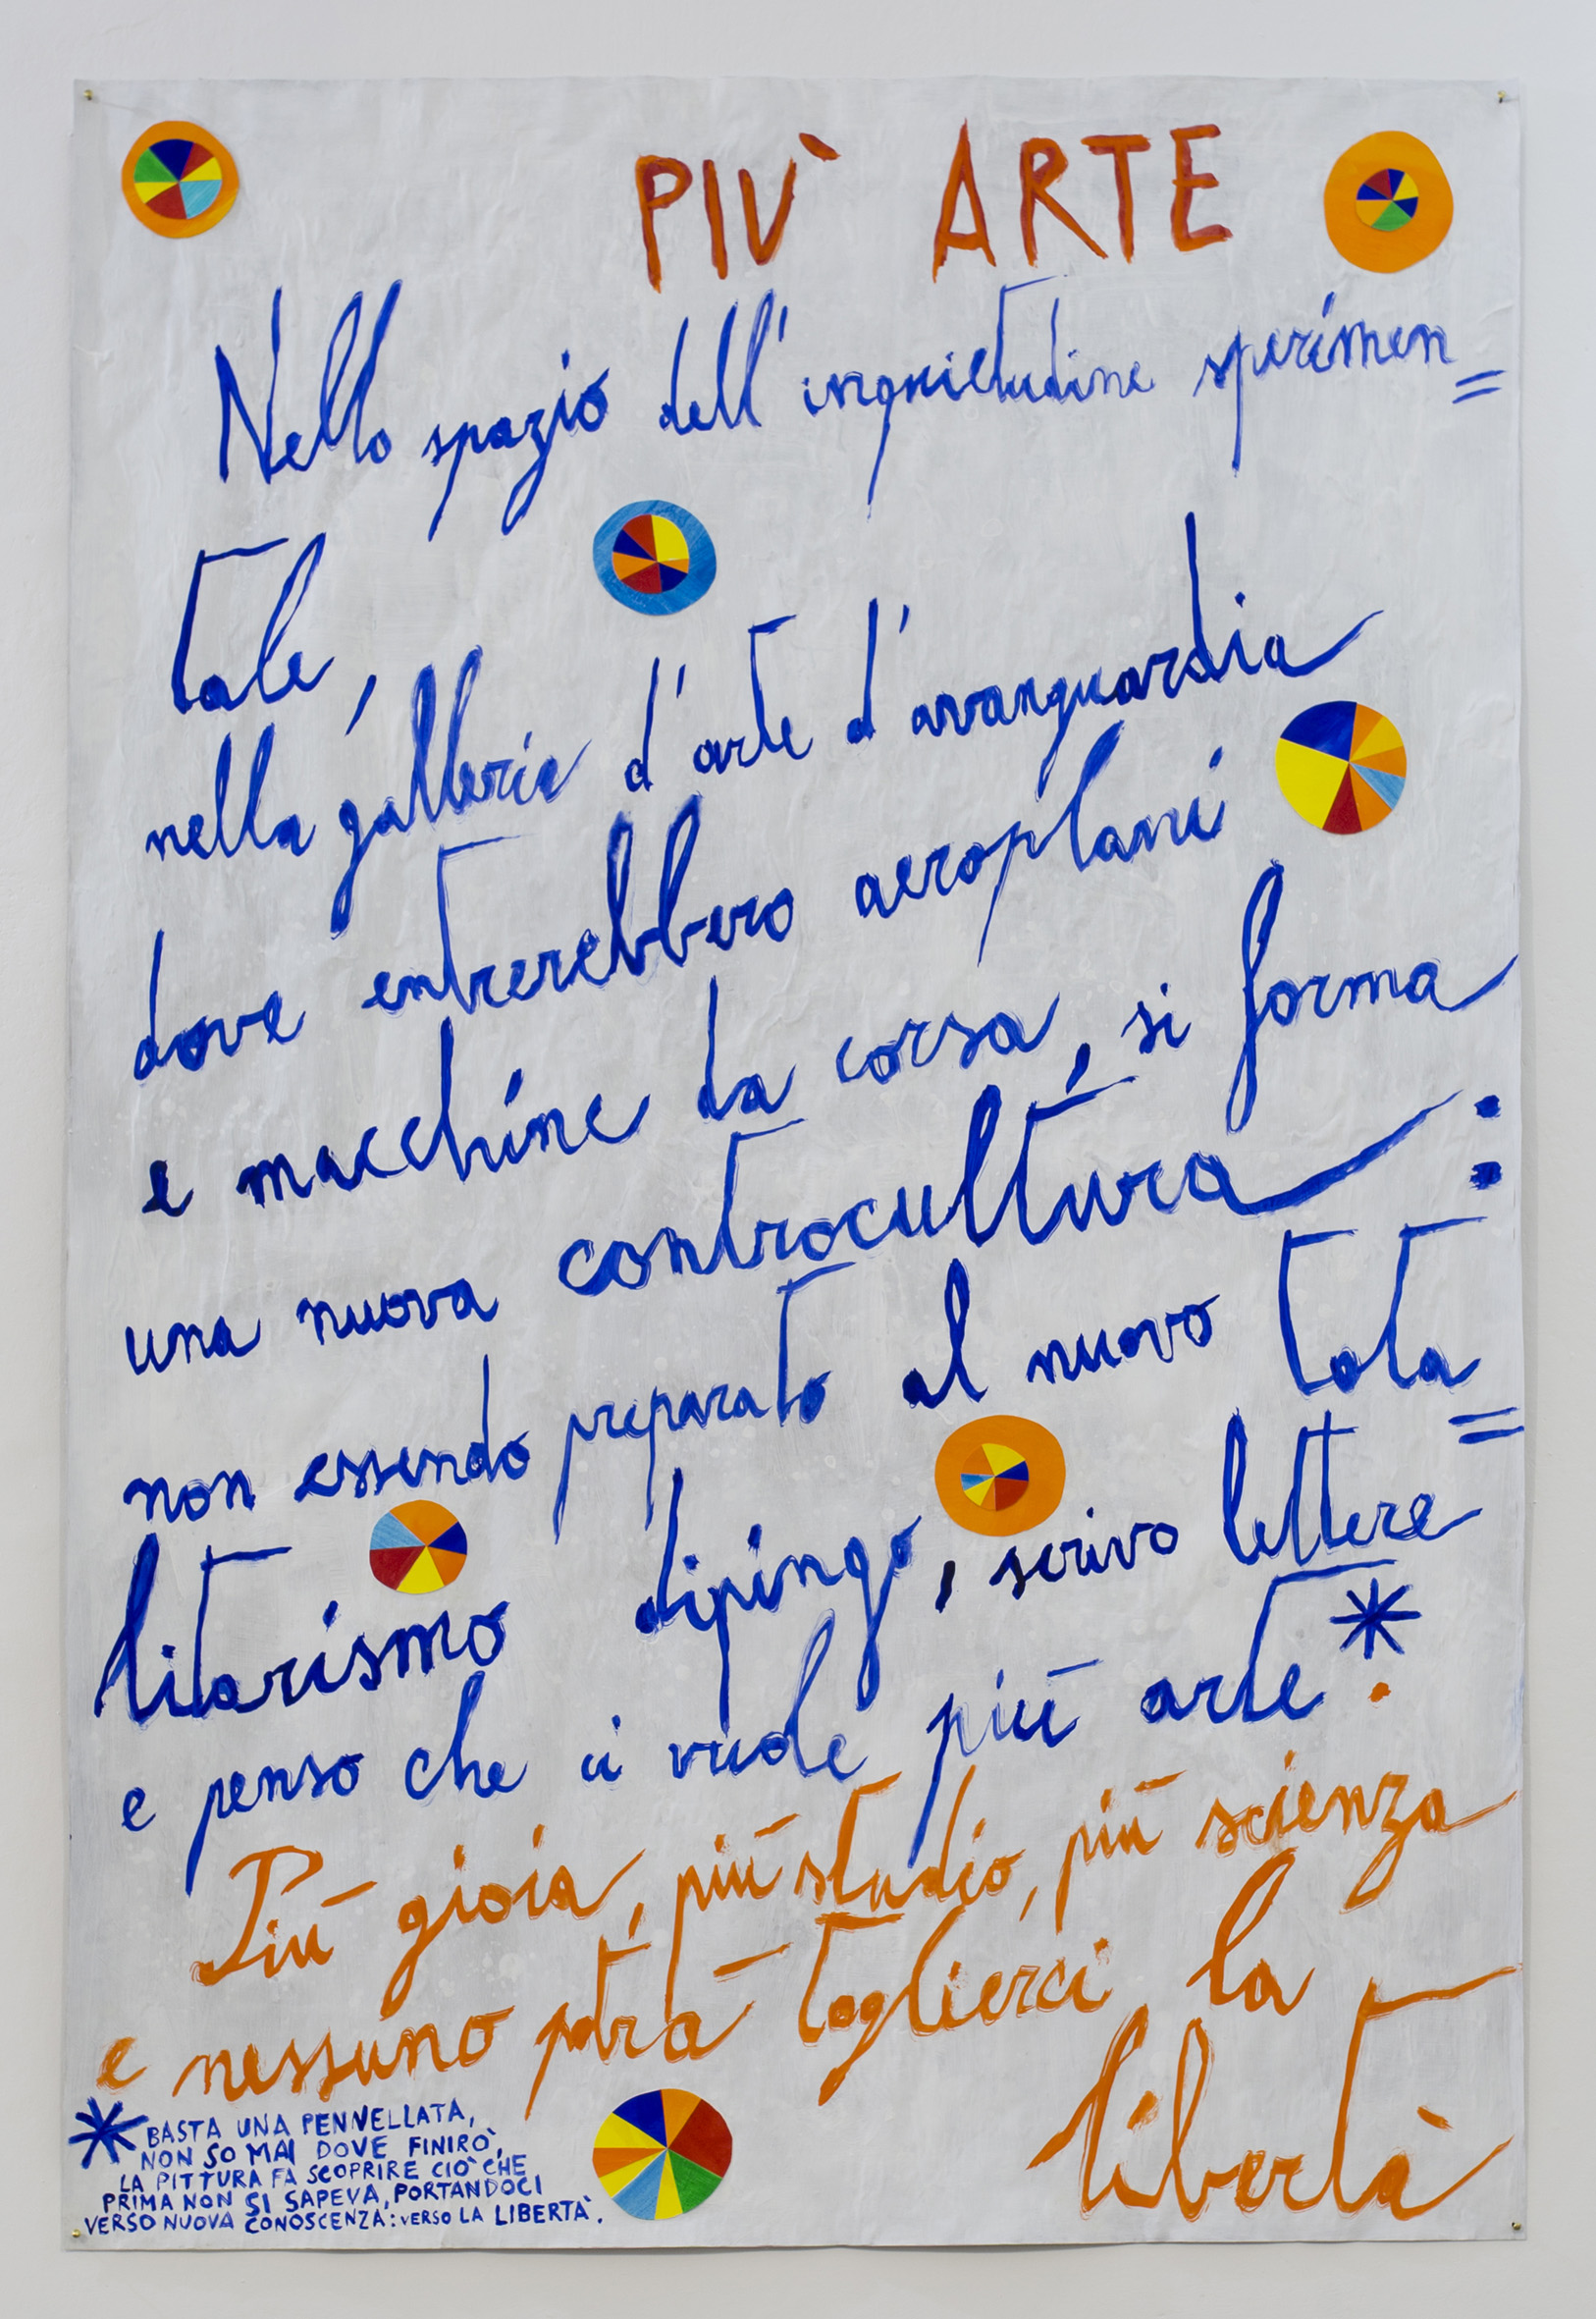 PIÙ ARTE
Nello spazio dell'inquietudine sperimen=
tale,
nella gallerie d'arte d'avanguardia
dove entrerebbero aeroplani
e macchine da corsa, si forma
una nuova controcultura:
non essendo preparato al nuovo tota=
litarismo dipingo, scrivo lettere
e penso che ci vuole più arte*.
Più gioia, più studio, più scienza
e nessuno potrà toglierci la
libertà
* BASTA UNA PENNELLATA,
NON SO MAI DOVE FINIRÒ,
LA PITTURA FA SCOPRIRE CIÒ CHE
PRIMA NON SI SAPEVA, PORTANDOCI
VERSO NUOVA CONOSCENZA: VERSO LA LIBERTÀ.